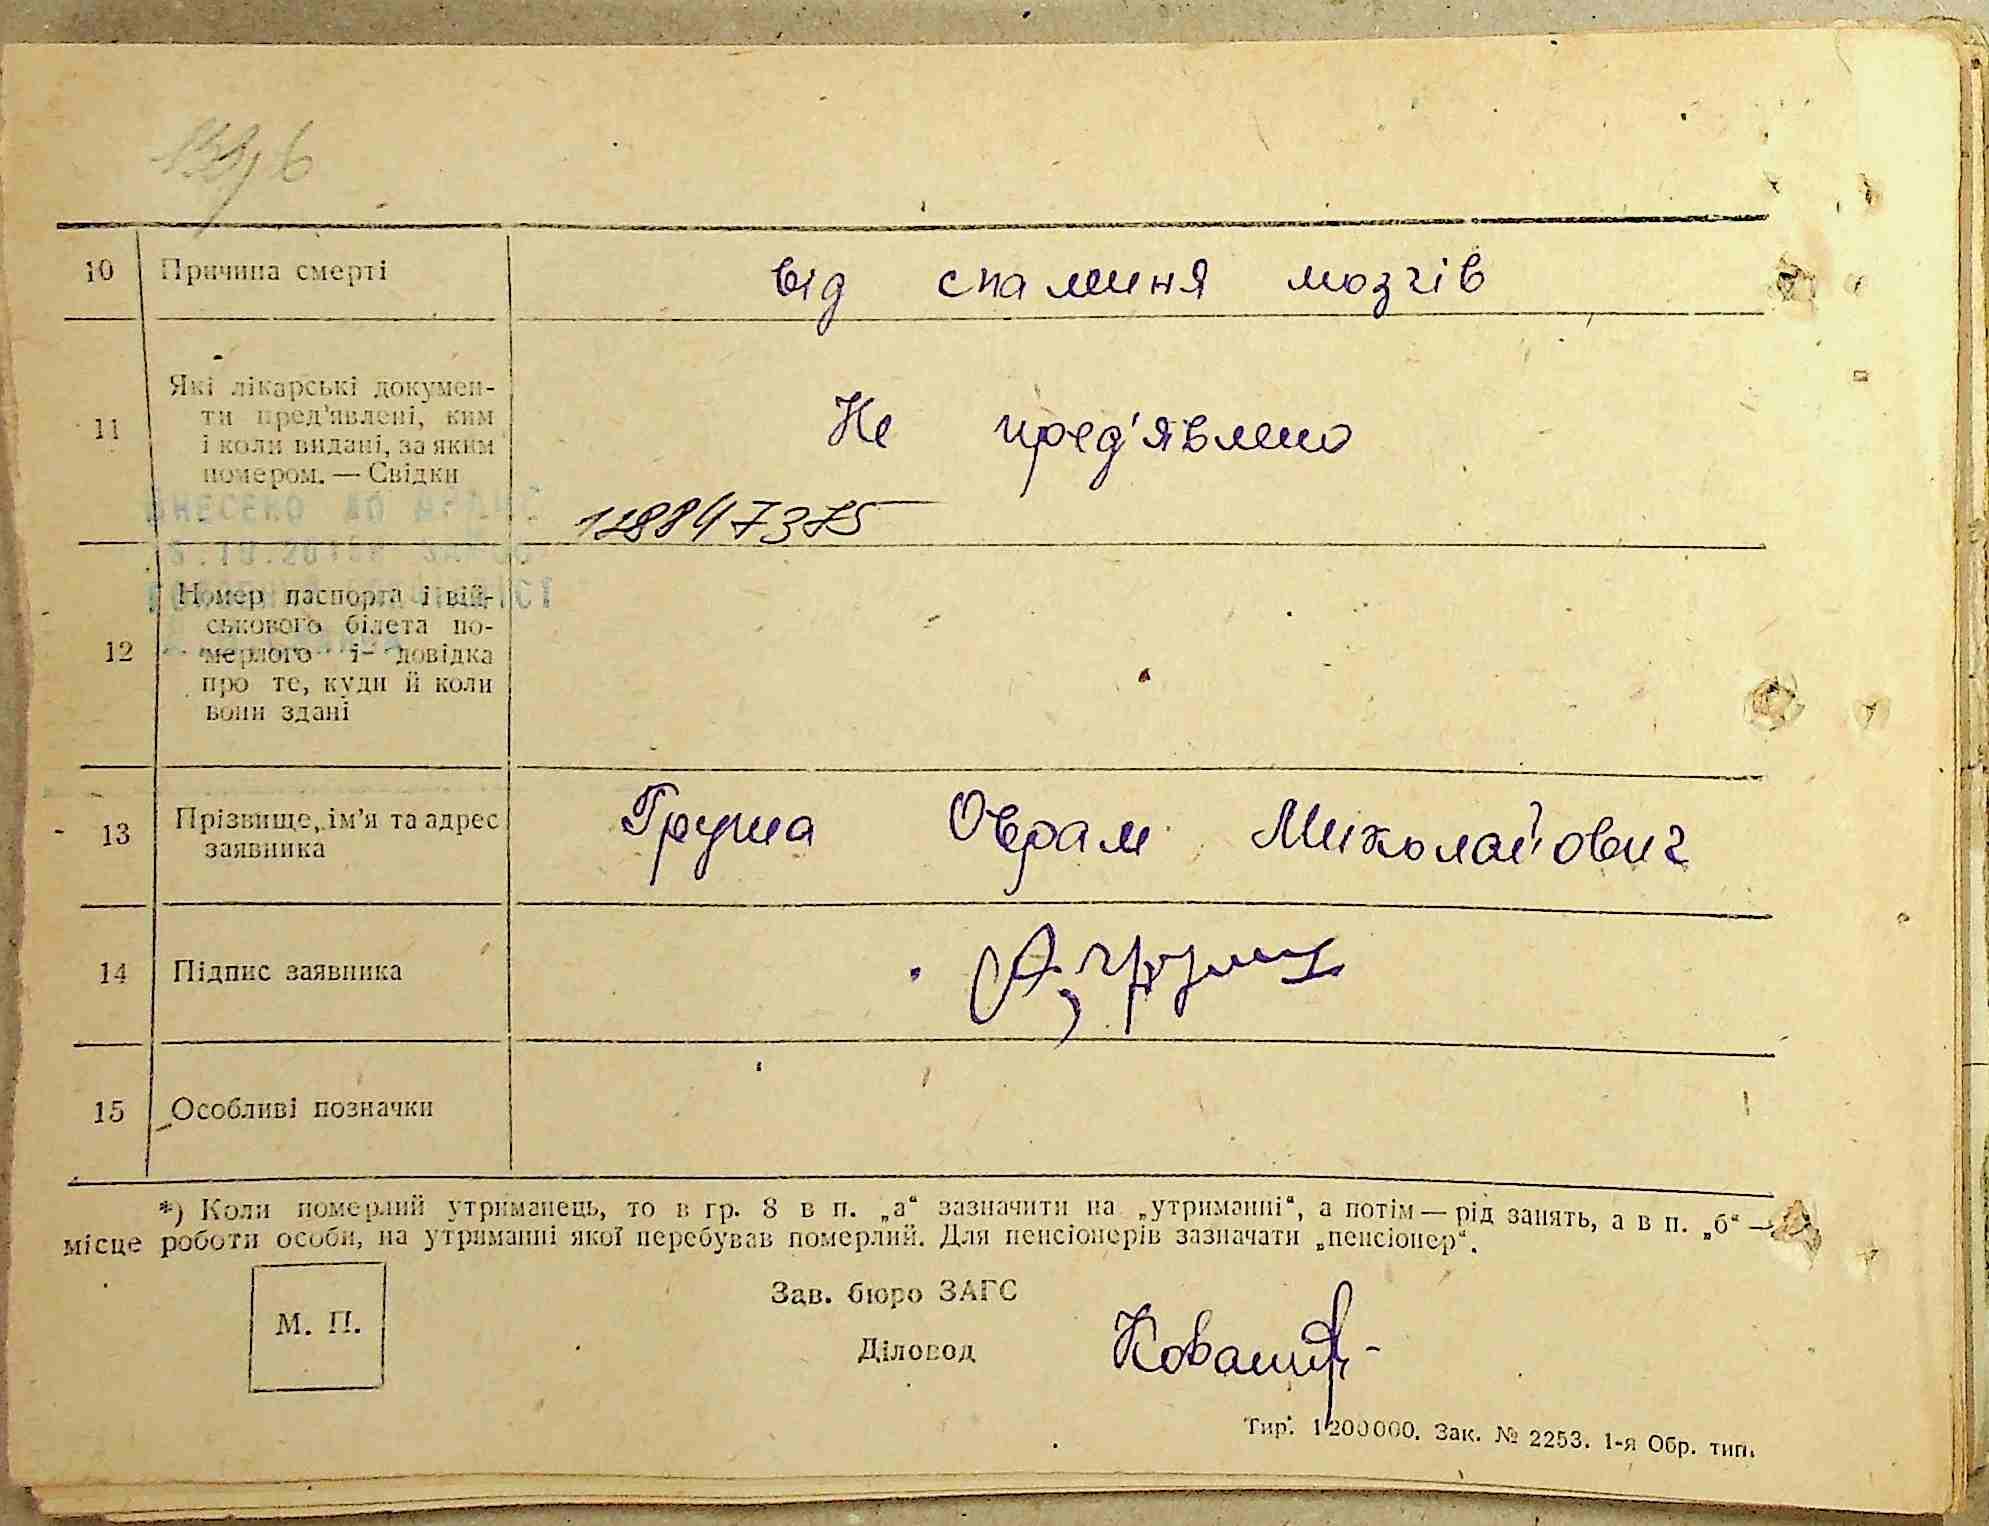 10 Причина смерті від спаления мозгів
11 Які лікарські докумен-
ти пред'явлені, ким
і коли видані, за яким
номером. — Свідки
Не пред'явлено
ВНЕСЕНО ДО
12884 7375
12 Номер паспорта і вій-
ськового білета по-
мерлого і довідка
про те, куди й коли
вони здані
13 Прізвище, ім'я та адрес
заявника
Грума Оврам Миколайович
14 Підпис заявника
15 Особливі позначки
*) Коли померлий утриманець, то в гр. 8 в п. „а“ зазначити на „утриманні“, а потім — рід занять, а в п. „б“ —
місце роботи особи, на утриманні якої перебував померлий. Для пенсіонерів зазначати „пенсіонер“.
М. П.
Зав. бюро ЗАГС
Діловод
Тир. 1200000. Зак. № 2253. 1-я Обр. тип.